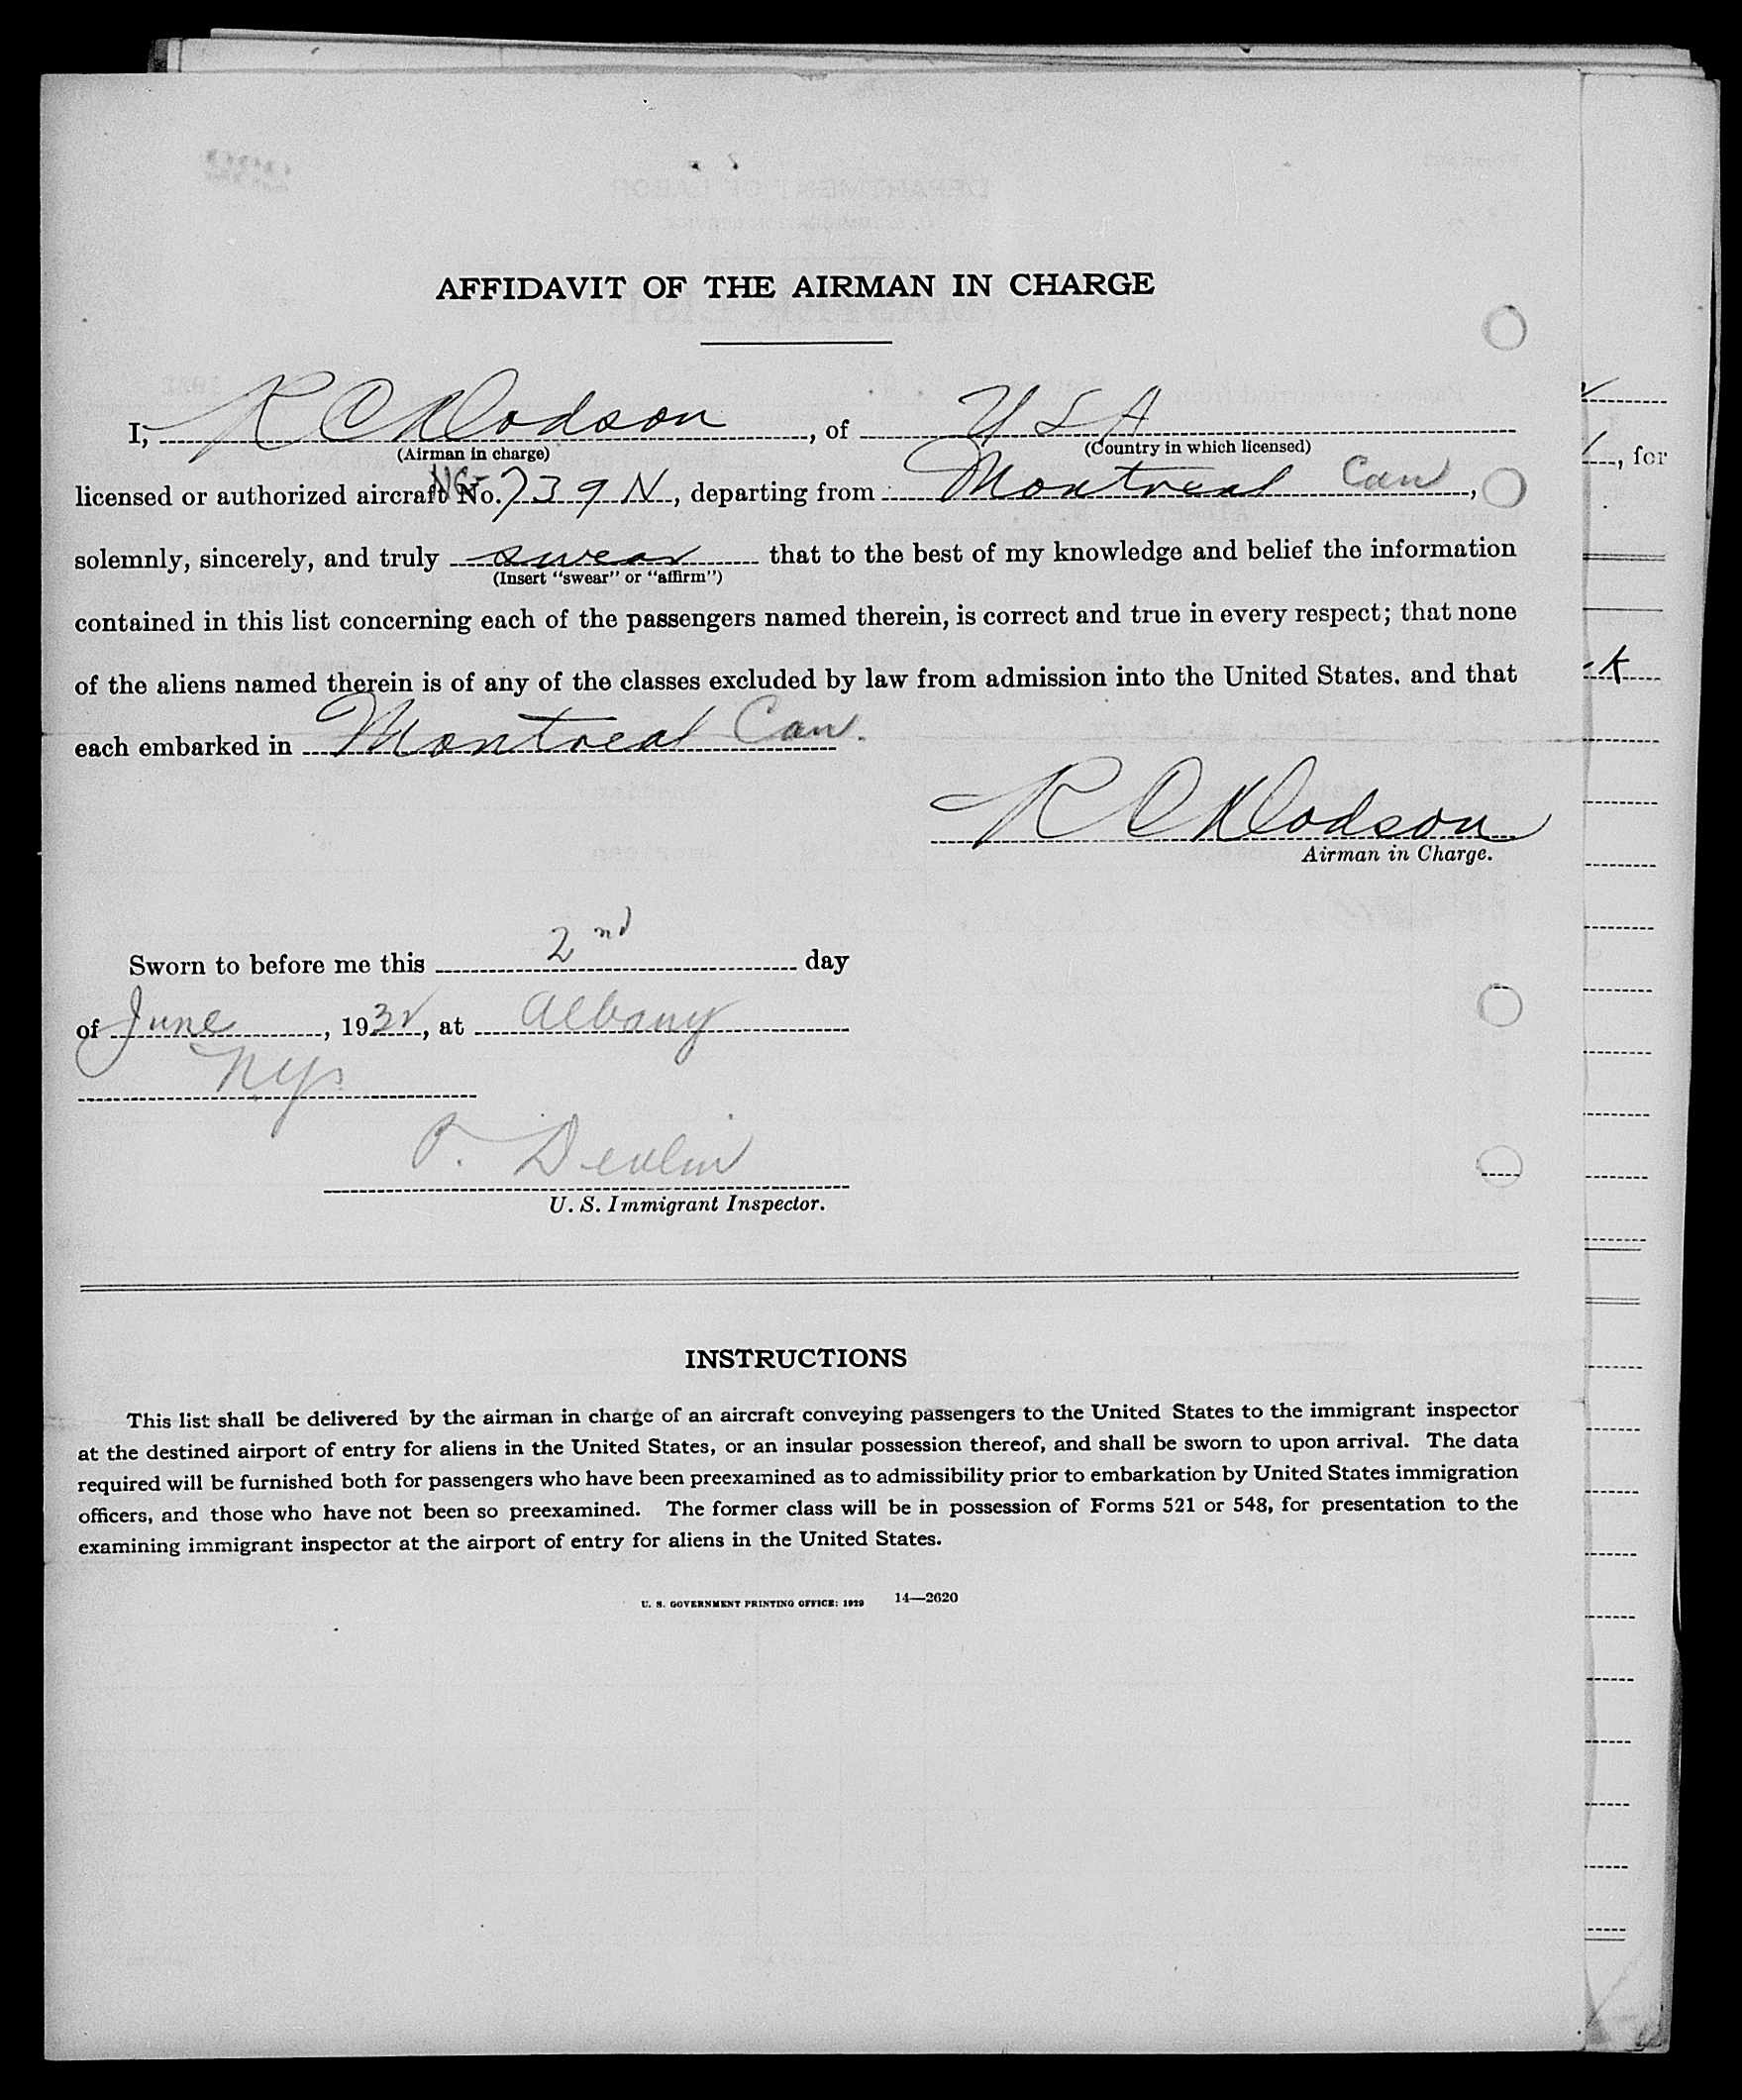 AFFIDAVIT OF THE AIRMAN IN CHARGE
I, R C Dodson, of USA
(Airman in charge) (Country in which licensed)
licensed or authorized aircraft No. NC 739N, departing from Montreal Can,
solemnly, sincerely, and truly swear that to the best of my knowledge and belief the information
(Insert "swear" or "affirm")
contained in this list concerning each of the passengers named therein, is correct and true in every respect; that none
of the aliens named therein is of any of the classes excluded by law from admission into the United States. and that
each embarked in Montreal Can.
R C Dodson
Airman in Charge.
Sworn to before me this 2nd day
of June, 1932, at Albany
NY
P. Devlin
U. S. Immigrant Inspector.
INSTRUCTIONS
This list shall be delivered by the airman in charge of an aircraft conveying passengers to the United States to the immigrant inspector
at the destined airport of entry for aliens in the United States, or an insular possession thereof, and shall be sworn to upon arrival. The data
required will be furnished both for passengers who have been preexamined as to admissibility prior to embarkation by United States immigration
officers, and those who have not been so preexamined. The former class will be in possession of Forms 521 or 548, for presentation to the
examining immigrant inspector at the airport of entry for aliens in the United States.
U. S. GOVERNMENT PRINTING OFFICE: 1929 14—2620
, for
k